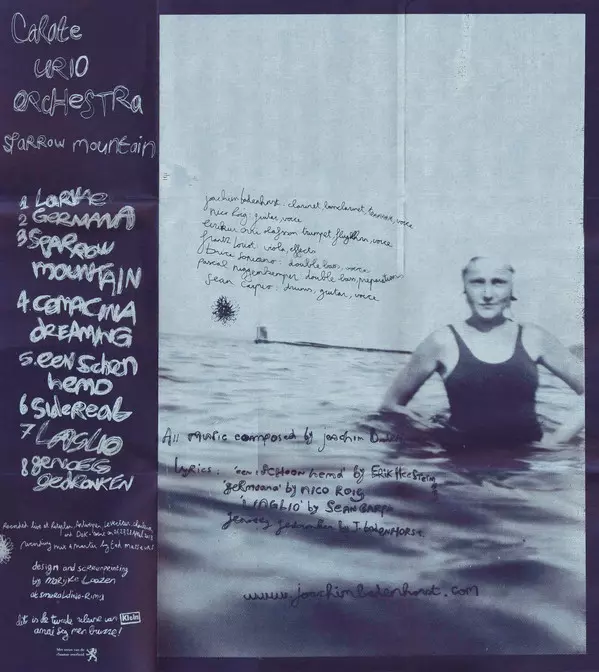 Carate
URIO
ORCHESTRA
SPARROW MOUNTAIN
1 LARME
2 GERMANA
3 SPARROW
MOUNTAIN
4. COMACINA
DREAMING
5. een schon
hemd
6 SIDEREAL
7 LAGLIO
8 genoeg
gedronken
design and screenprinting
by Marijke Loozen
at smeraldina-rima
dit is de twede release van KLEIN
Met steun van de
Vlaamse overheid
joachim badenhorst: clarinet, bassclarinet, tenorsax, voice
nico roig: guitar, voice
eirikur orri olafsson trumpet, flugelhorn, voice
frantz loriot: viola, effects
brice soniano: double bass, voice
pascal niggenkemper double bass, preparations
Sean Carpio: drums, guitar, voice
All MUSIC composed by joachim
Lyrics: 'een SCHOON hemd' by Erik
'germana' by NICO ROIG
'LAGLIO' by SEAN CARPIO
genoeg gedronken by J. badenhorst
www.joachimbadenhorst.com